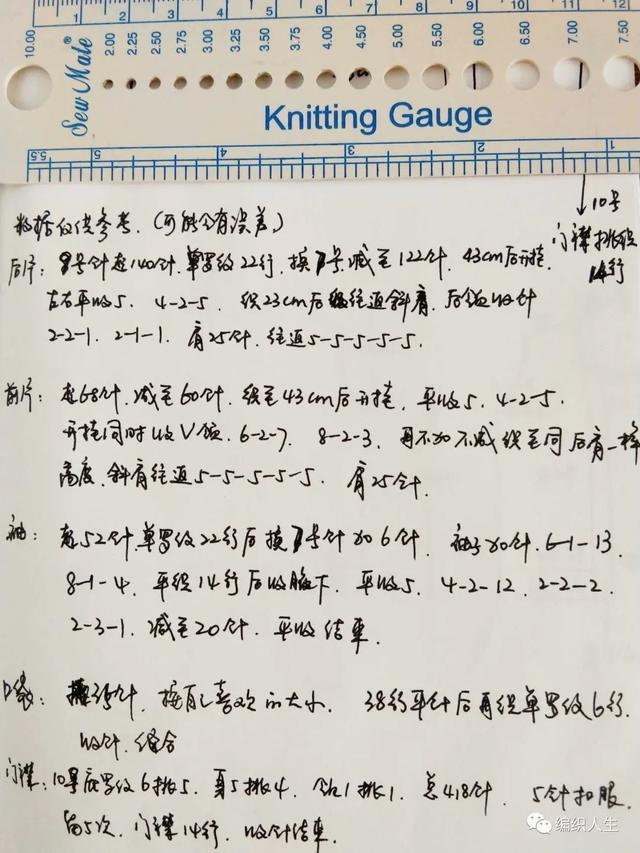 10.00 2.00 2.25 2.50 2.75 3.00 3.25 3.50 3.75 4.00 4.50 5.00 5.50 6.00 6.50 7.00 7.50
Sew Mate
Knitting Gauge
5.5 5 4 3 2 1
数据仅供参考.(可能会有误差)
↓10号
门襟挑织
14行
后片: 8号针起140针.单罗纹22行.换7号.减至122针. 43cm后开挂.
左右平收5. 4-2-5. 织23cm后往返斜肩. 后领收针
2-2-1. 2-1-1. 肩25针. 往返5-5-5-5-5.
前片: 起68针.减至60针.织至43cm后开挂. 平收5. 4-2-5.
开挂同时收V领. 6-2-7. 8-2-3. 再不加不减织至同后肩一样
高度.斜肩往返5-5-5-5-5. 肩25针.
袖: 起52针.单罗纹22行后换7号针加6针. 袖子加针.6-1-13.
8-1-4. 平织14行后收腋下. 平收5. 4-2-12. 2-2-2.
2-3-1. 减至20针. 平收结束.
口袋: 35针. 按自己喜欢的大小. 38行平针后再织单罗纹6行.
收针.缝合
门襟: 10号底罗纹6挑5. 身5挑4. 领1挑1. 总418针. 5针扣眼.
留5次. 门襟14行. 收针结束.
编织人生